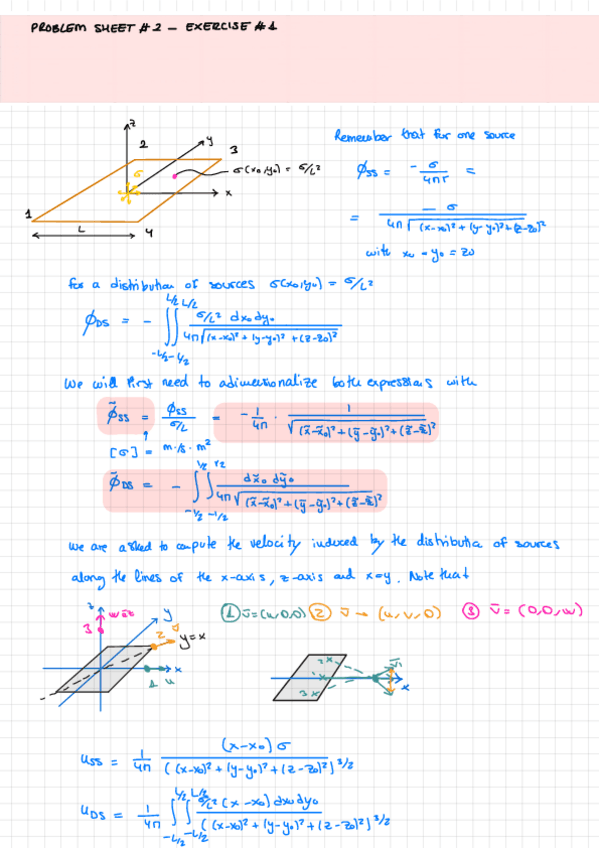 PROBLEM SHEET #2 — EXERCISE #1
z
2
y
3
σ(x₀,y₀) = σ/L²
σ
x
1
L
4
Remember that for one source
ϕss = - σ / 4πr =
= - σ / 4π√((x-x₀)² + (y-y₀)² + (z-z₀)²)
with x₀ = y₀ = z₀
for a distribution of sources σ(x₀,y₀) = σ/L²
ϕDS = - ∫∫ (-L/2, L/2) (-L/2, L/2) σ/L² dx₀ dy₀ / 4π√((x-x₀)² + (y-y₀)² + (z-z₀)²)
We will first need to adimensionalize both expressions with
ϕ̃ss = ϕss / σ/L = - 1/4π · 1 / √((x̃-x̃₀)² + (ỹ-ỹ₀)² + (z̃-z̃₀)²)
[σ] = m/s · m²
ϕ̃DS = - ∫∫ (-1/2, 1/2) (-1/2, 1/2) dx̃₀ dỹ₀ / 4π√((x̃-x̃₀)² + (ỹ-ỹ₀)² + (z̃-z̃₀)²)
We are asked to compute the velocity induced by the distribution of sources
along the lines of the x-axis, z-axis and x=y. Note that
z
w
3
y
2
y=x
x
1 u
① v̄=(u,0,0) ② v̄ → (u,v,0) ③ v̄ = (0,0,w)
2x
1x
3x
x
uss = 1/4π (x-x₀)σ / ((x-x₀)² + (y-y₀)² + (z-z₀)²)^3/2
uDS = 1/4π ∫∫ (-L/2, L/2) (-L/2, L/2) σ/L² (x-x₀) dx₀ dy₀ / ((x-x₀)² + (y-y₀)² + (z-z₀)²)^3/2